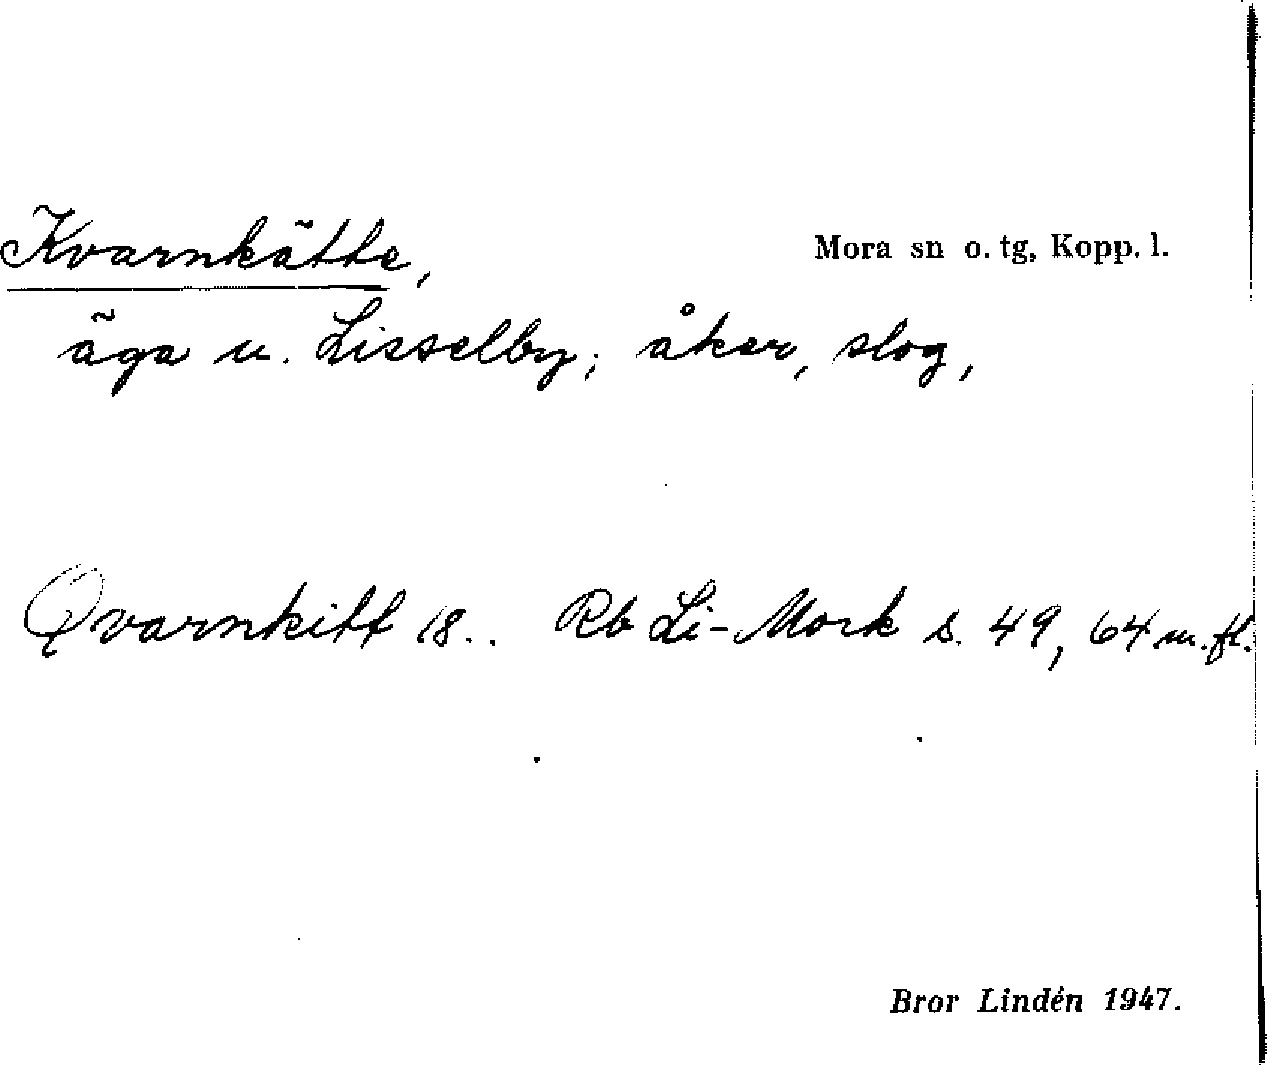 Kvarnkätte, Mora sn o. tg, Kopp. l.
äga u. Lisselby; åker, slog,
Qvarnkitt 18.. Rb Li-Mork s. 49, 64 m. fl.
Bror Lindén 1947.